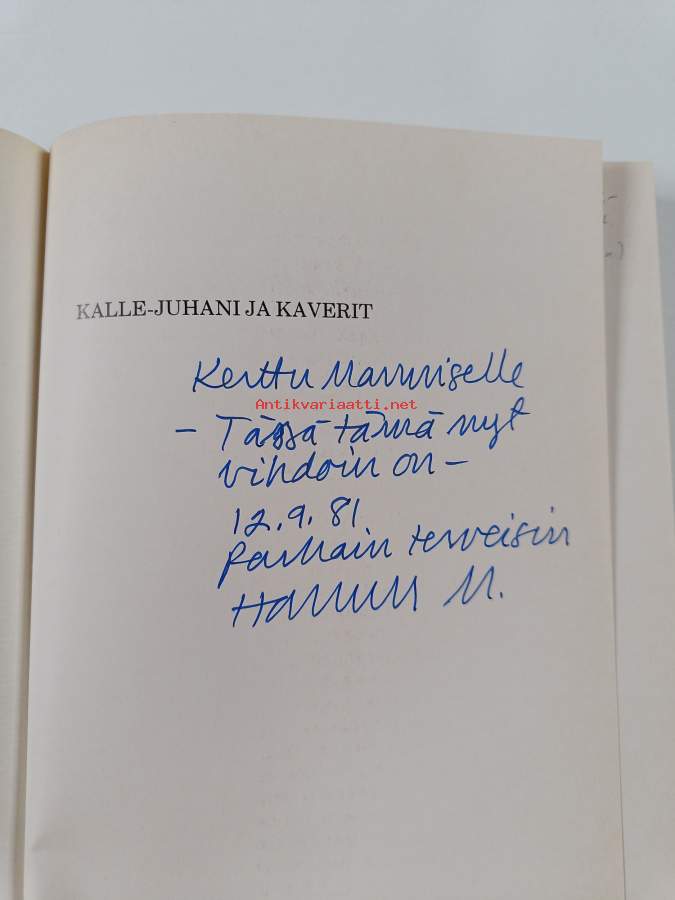 KALLE-JUHANI JA KAVERIT
Kerttu Manniselle
Antikvariaatti.net
- Tässä tämä nyt
vihdoin on -
12.9.81
Parhain terveisin
Hannu M.